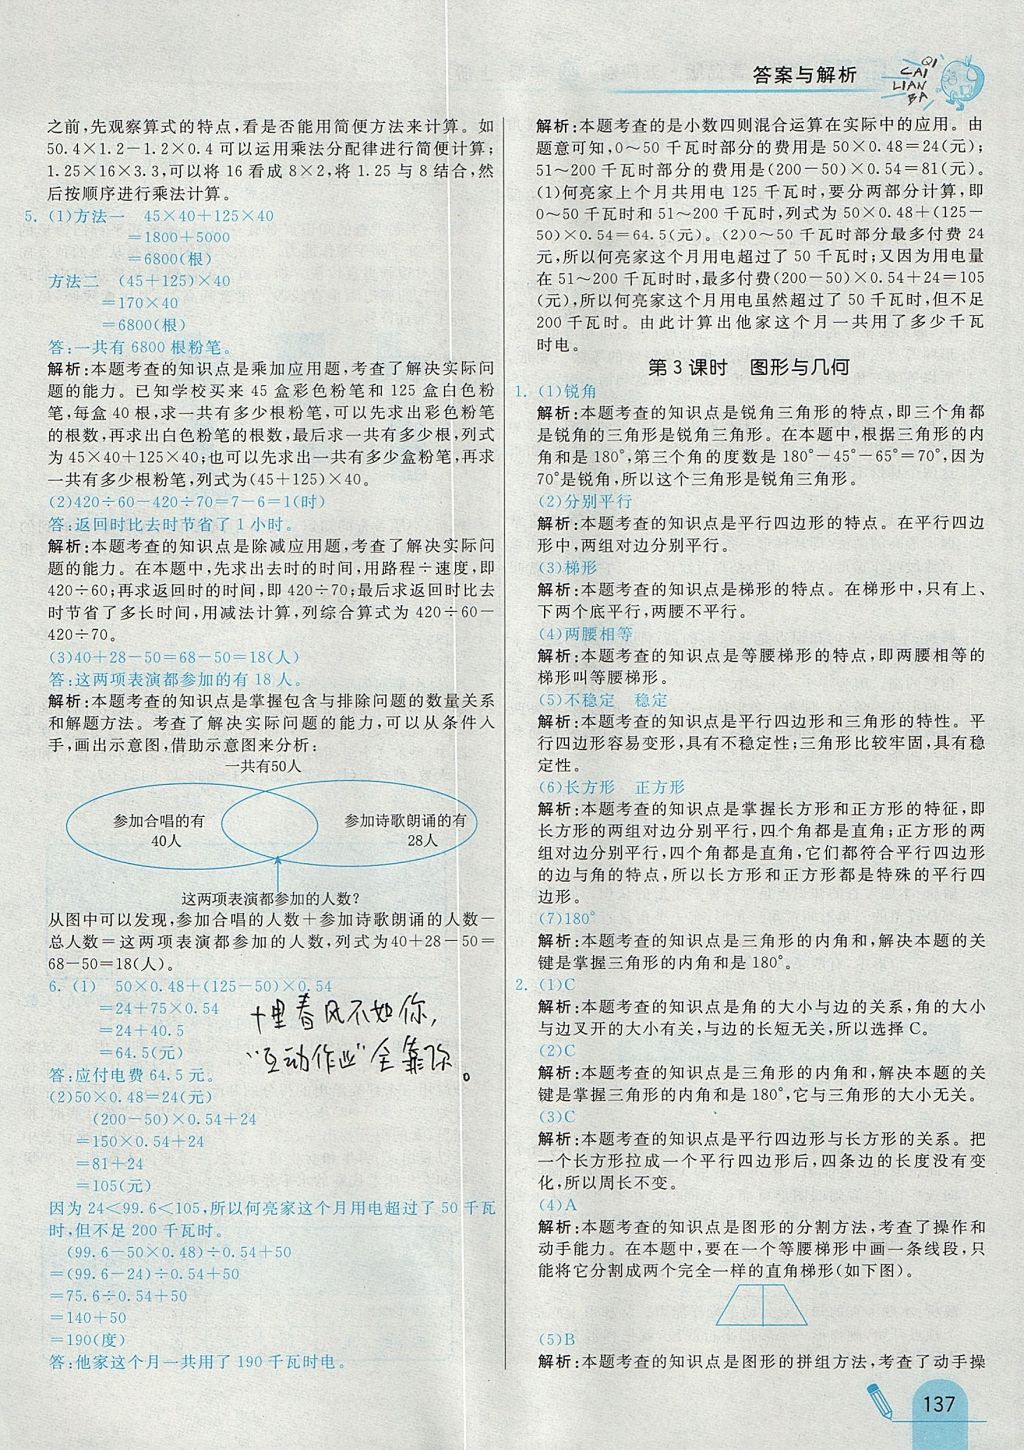 答案与解析
QI
CAI
LIAN
BA
之前,先观察算式的特点,看是否能用简便方法来计算。如
50.4×1.2-1.2×0.4 可以运用乘法分配律进行简便计算;
1.25×16×3.3,可以将 16 看成 8×2,将 1.25 与 8 结合,然
后按顺序进行乘法计算。
5. (1)方法一 45×40+125×40
=1800+5000
=6800(根)
方法二 (45+125)×40
=170×40
=6800(根)
答:一共有 6800 根粉笔。
解析:本题考查的知识点是乘加应用题,考查了解决实际问
题的能力。已知学校买来 45 盒彩色粉笔和 125 盒白色粉
笔,每盒 40 根,求一共有多少根粉笔,可以先求出彩色粉笔
的根数,再求出白色粉笔的根数,最后求一共有多少根,列式
为 45×40+125×40;也可以先求出一共有多少盒粉笔,再求
一共有多少根粉笔,列式为(45+125)×40。
(2)420÷60-420÷70=7-6=1(时)
答:返回时比去时节省了 1 小时。
解析:本题考查的知识点是除减应用题,考查了解决实际问
题的能力。在本题中,先求出去时的时间,用路程÷速度,即
420÷60;再求返回时的时间,即 420÷70;最后求返回时比去
时节省了多长时间,用减法计算,列综合算式为 420÷60-
420÷70。
(3)40+28-50=68-50=18(人)
答:这两项表演都参加的有 18 人。
解析:本题考查的知识点是掌握包含与排除问题的数量关系
和解题方法。考查了解决实际问题的能力,可以从条件入
手,画出示意图,借助示意图来分析:
一共有50人
参加合唱的有
40人
参加诗歌朗诵的有
28人
这两项表演都参加的人数?
从图中可以发现,参加合唱的人数+参加诗歌朗诵的人数-
总人数=这两项表演都参加的人数,列式为40+28-50=
68-50=18(人)。
6. (1) 50×0.48+(125-50)×0.54
=24+75×0.54
=24+40.5
=64.5(元)
答:应付电费 64.5 元。
十里春风不如你,
“互动作业”全靠你。
(2)50×0.48=24(元)
(200-50)×0.54+24
=150×0.54+24
=81+24
=105(元)
因为 24<99.6<105,所以何亮家这个月用电超过了 50 千瓦
时,但不足 200 千瓦时。
(99.6-50×0.48)÷0.54+50
=(99.6-24)÷0.54+50
=75.6÷0.54+50
=140+50
=190(度)
答:他家这个月一共用了 190 千瓦时电。
解析:本题考查的是小数四则混合运算在实际中的应用。由
题意可知,0~50 千瓦时部分的费用是 50×0.48=24(元);
51~200 千瓦时部分的费用是(200-50)×0.54=81(元)。
(1)何亮家上个月共用电 125 千瓦时,要分两部分计算,即
0~50 千瓦时和 51~200 千瓦时,列式为 50×0.48+(125-
50)×0.54=64.5(元)。(2)0~50 千瓦时部分最多付费 24
元,所以何亮家这个月用电超过了 50 千瓦时;又因为用电量
在 51~200 千瓦时时,最多付费(200-50)×0.54+24=105
(元),所以何亮家这个月用电虽然超过了 50 千瓦时,但不足
200 千瓦时。由此计算出他家这个月一共用了多少千瓦
时电。
第 3 课时 图形与几何
1. (1)锐角
解析:本题考查的知识点是锐角三角形的特点,即三个角都
是锐角的三角形是锐角三角形。在本题中,根据三角形的内
角和是 180°,第三个角的度数是 180°-45°-65°=70°,因为
70°是锐角,所以这个三角形是锐角三角形。
(2)分别平行
解析:本题考查的知识点是平行四边形的特点。在平行四边
形中,两组对边分别平行。
(3)梯形
解析:本题考查的知识点是梯形的特点。在梯形中,只有上、
下两个底平行,两腰不平行。
(4)两腰相等
解析:本题考查的知识点是等腰梯形的特点,即两腰相等的
梯形叫等腰梯形。
(5)不稳定 稳定
解析:本题考查的知识点是平行四边形和三角形的特性。平
行四边形容易变形,具有不稳定性;三角形比较牢固,具有稳
定性。
(6)长方形 正方形
解析:本题考查的知识点是掌握长方形和正方形的特征,即
长方形的两组对边分别平行,四个角都是直角;正方形的两
组对边分别平行,四个角都是直角,它们都符合平行四边形
的边与角的特点,所以长方形和正方形都是特殊的平行四
边形。
(7)180°
解析:本题考查的知识点是三角形的内角和,解决本题的关
键是掌握三角形的内角和是 180°。
2. (1)C
解析:本题考查的知识点是角的大小与边的关系,角的大小
与边叉开的大小有关,与边的长短无关,所以选择 C。
(2)C
解析:本题考查的知识点是三角形的内角和,解决本题的关
键是掌握三角形的内角和是 180°,它与三角形的大小无关。
(3)C
解析:本题考查的知识点是平行四边形与长方形的关系。把
一个长方形拉成一个平行四边形后,四条边的长度没有变
化,所以周长不变。
(4)A
解析:本题考查的知识点是图形的分割方法,考查了操作和
动手能力。在本题中,要在一个等腰梯形中画一条线段,只
能将它分割成两个完全一样的直角梯形(如下图)。
(5)B
解析:本题考查的知识点是图形的拼组方法,考查了动手操
137